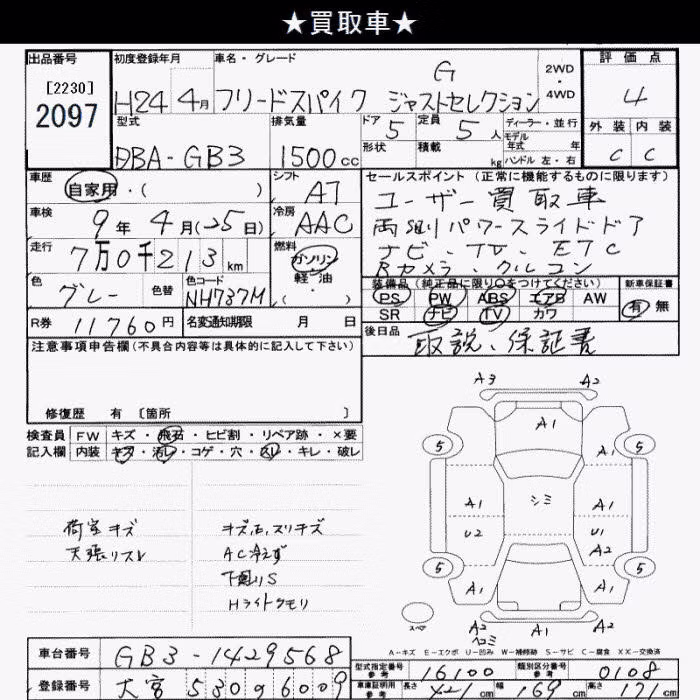 ★買取車★
出品番号
[2230]
2097
初度登録年月
H24 4月
車名・グレード
フリードスパイク G ジャストセレクション
2WD
・
4WD
評価点
4
外装 内装
C C
型式
DBA-GB3
排気量
1500cc
ドア 5
定員 5人
形状
積載 kg
ディーラー・並行
モデル年式 年
ハンドル 左・右
車歴
自家用・( )
シフト
AT
セールスポイント (正常に機能するものに限ります)
ユーザー買取車
両側パワースライドドア
ナビ・TV・ETC
Bカメラ・クルコン
車検
9年4月(25日)
冷房
AAC
走行
7万0千213km
燃料
ガソリン
・
軽・油
( )
色
グレー
色替
色コード
NH737M
装備品(純正品に限り○をつけてください)
PS PW ABS エアB AW
SR ナビ TV カワ
新車保証書
有 無
R券 11760円
名変通知期限 月 日
後日品
取説、保証書
注意事項申告欄(不具合内容等は具体的に記入して下さい)
修復歴 有 〔箇所 〕
検査員 FW キズ・飛石・ヒビ割・リペア跡・×要
記入欄 内装 キズ・汚レ・コゲ・穴・スレ・キレ・破レ
荷室キズ
天張リスレ
キズ石、スリキズ
AC冷えず
下廻りS
Hライトクモリ
A3 A2
A1
5 A1 5
A1 シミ A1
U2 U1
A2
5 A1 A1 5
スペア
A2 A1 A2
ヘコミ
A-キズ E-エクボ U-凹み W-補修跡 S-サビ C-腐食 XX-交換済
車台番号
GB3-1429568
登録番号
大宮 530 6009
型式指定番号
参考
16100
類別区分番号
参考
0108
車庫証明用
参考
長さ 421cm
幅 169cm
高さ 171cm